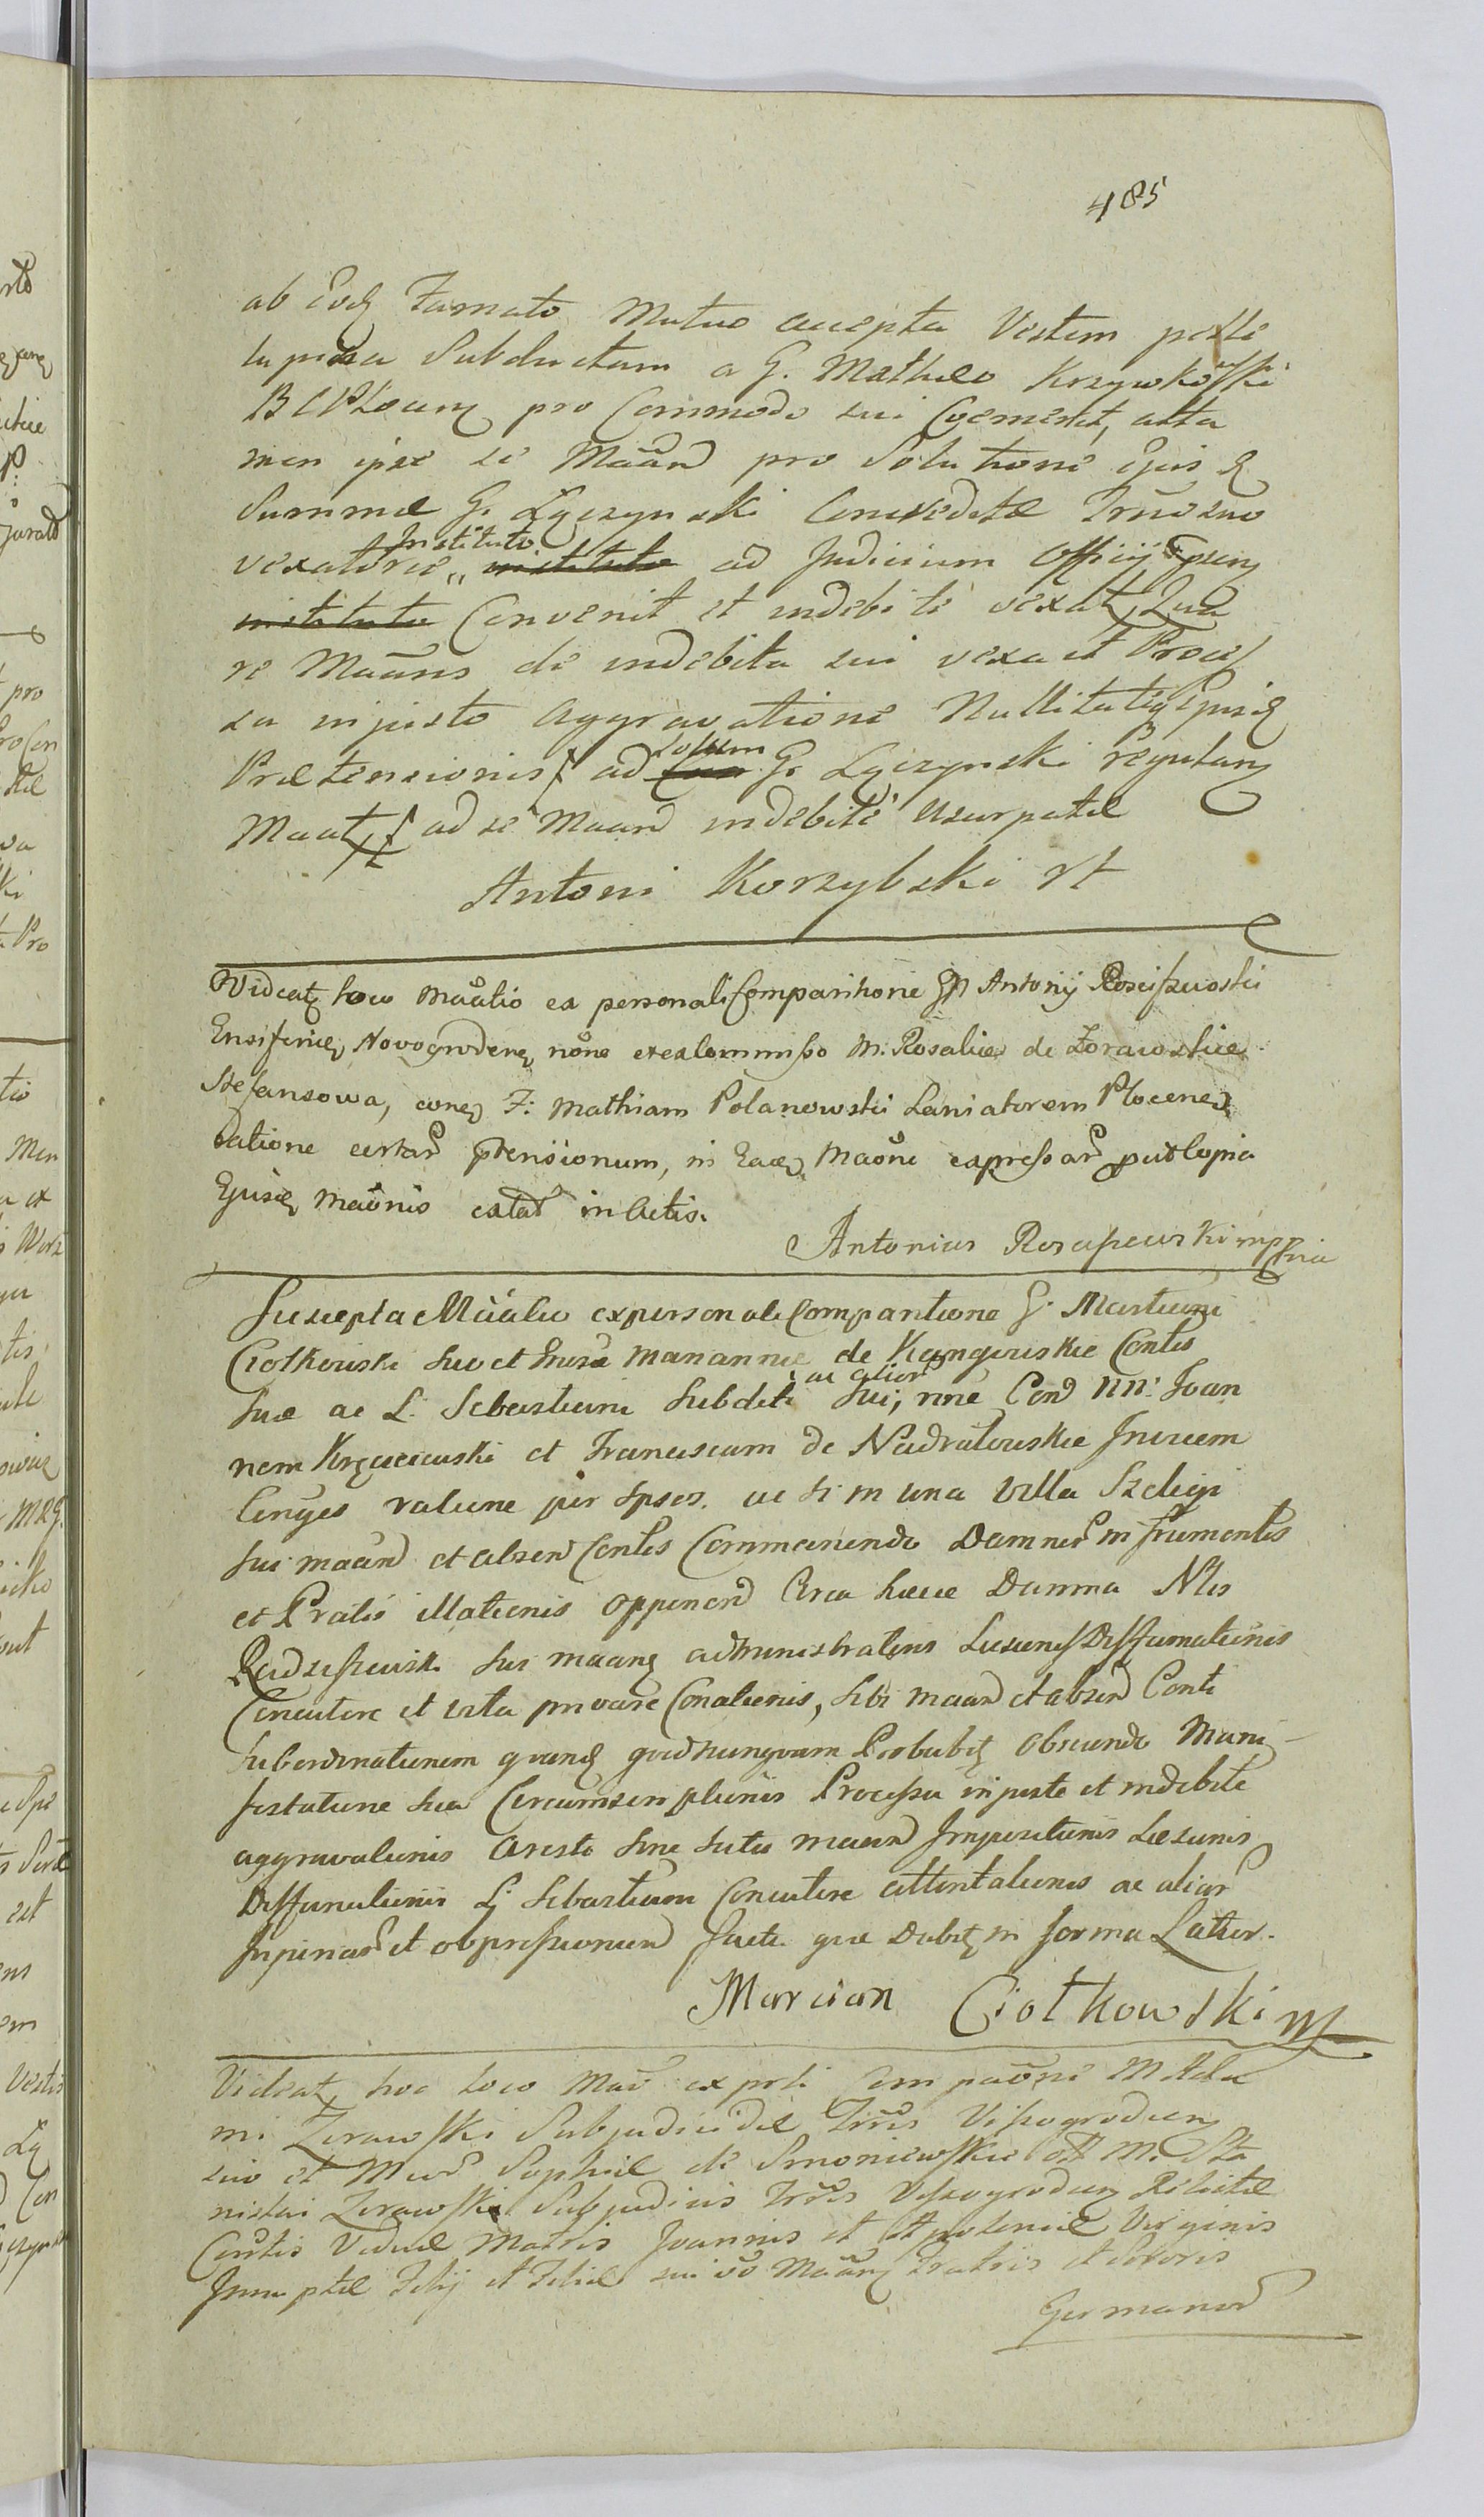 485
ab Eod Famato Mutuo accepta Vestem pelle
lupina Subductam a G. Matheo Krzywkowski
BCPłocen pro Commodo sui Coemerit, atta
men ipse se Maand pro Solutione ejusd
Summae G. Łączynski Concreditae Trmo suo
vexatorie Instituto instituto ad Judicium Officij Epsen
instituto Convenit et indebite vexat, Qua
re Maans de indebita sui vexa et Proces
su injusto aggravatione Nullitateq Ejusd
Praetensionis / ad Solum G. Łączynski regulan
Maat, / ad se Maand indebite Usurpatae
Antoni Korzybski rt
Videatz loco Maãtio ex personali Comparitione GM Antonij Rosciszewski
Ensiferid Novogroden, nõne et ex Commisso M. Rosaliae de Zorawskie
Stefansowa, conq F: Mathiam Polanowski Laniatorem Plocenem
ratione certar ptensionum, in Eadq Maõne expressar put Copia
Ejusd Maõnis extat in Actis.
Antonius Rosciszewski mppria
Suscepta Mãatio ex personali Comparitione G. Martiani
Ciołkowski suo et Grosae Mariannae de Kamgowskie Contis
suae ac L. Sebastiani Subditi ac alior sui, nõne Cond NN: Joan
nem Krzeciewski et Franciscam de Nadratowskie Invicem
Conges ratione per Ipsos. ac si in una Villa Szeligi
sui maand et absend Contis Commanendo Damnor in frumentis
et Pratis illationis opponend Circa haece Damna Nlis
Radziszewski sui maand administratoris Laesionis Diffamationis
Concutere et vita privare Conationis, sibi maand et absend Conti
subordinationem quand quidnunquam Probabit, obscundo Mani
festatione sua Circumscriptionis Processu injuste et indebite
aggravationis Aresto sine satis maand Impositionis Laesionis
Diffamationis L: Sebastianum Concutere attentationis ac alior
Injuriar et oppressionum facta quae dabit, in forma Latior.
Marcian Ciołkowski m
Videatz hoc loco Maõ ex prli Compaõne M Ada
mi Zorawski Subjudicidae Trris Visogroden
suo et Mcor Sophiae de Smoniewskie ol M. Sta
nislai Zorawski Subjudicis Trris Vissogroden Relictae
Contis Viduae Matris Joannis et Apoloniae Virginis
Innuptae Filij et Filiae sui vo Maan, Fratris et Sororis
Germanor